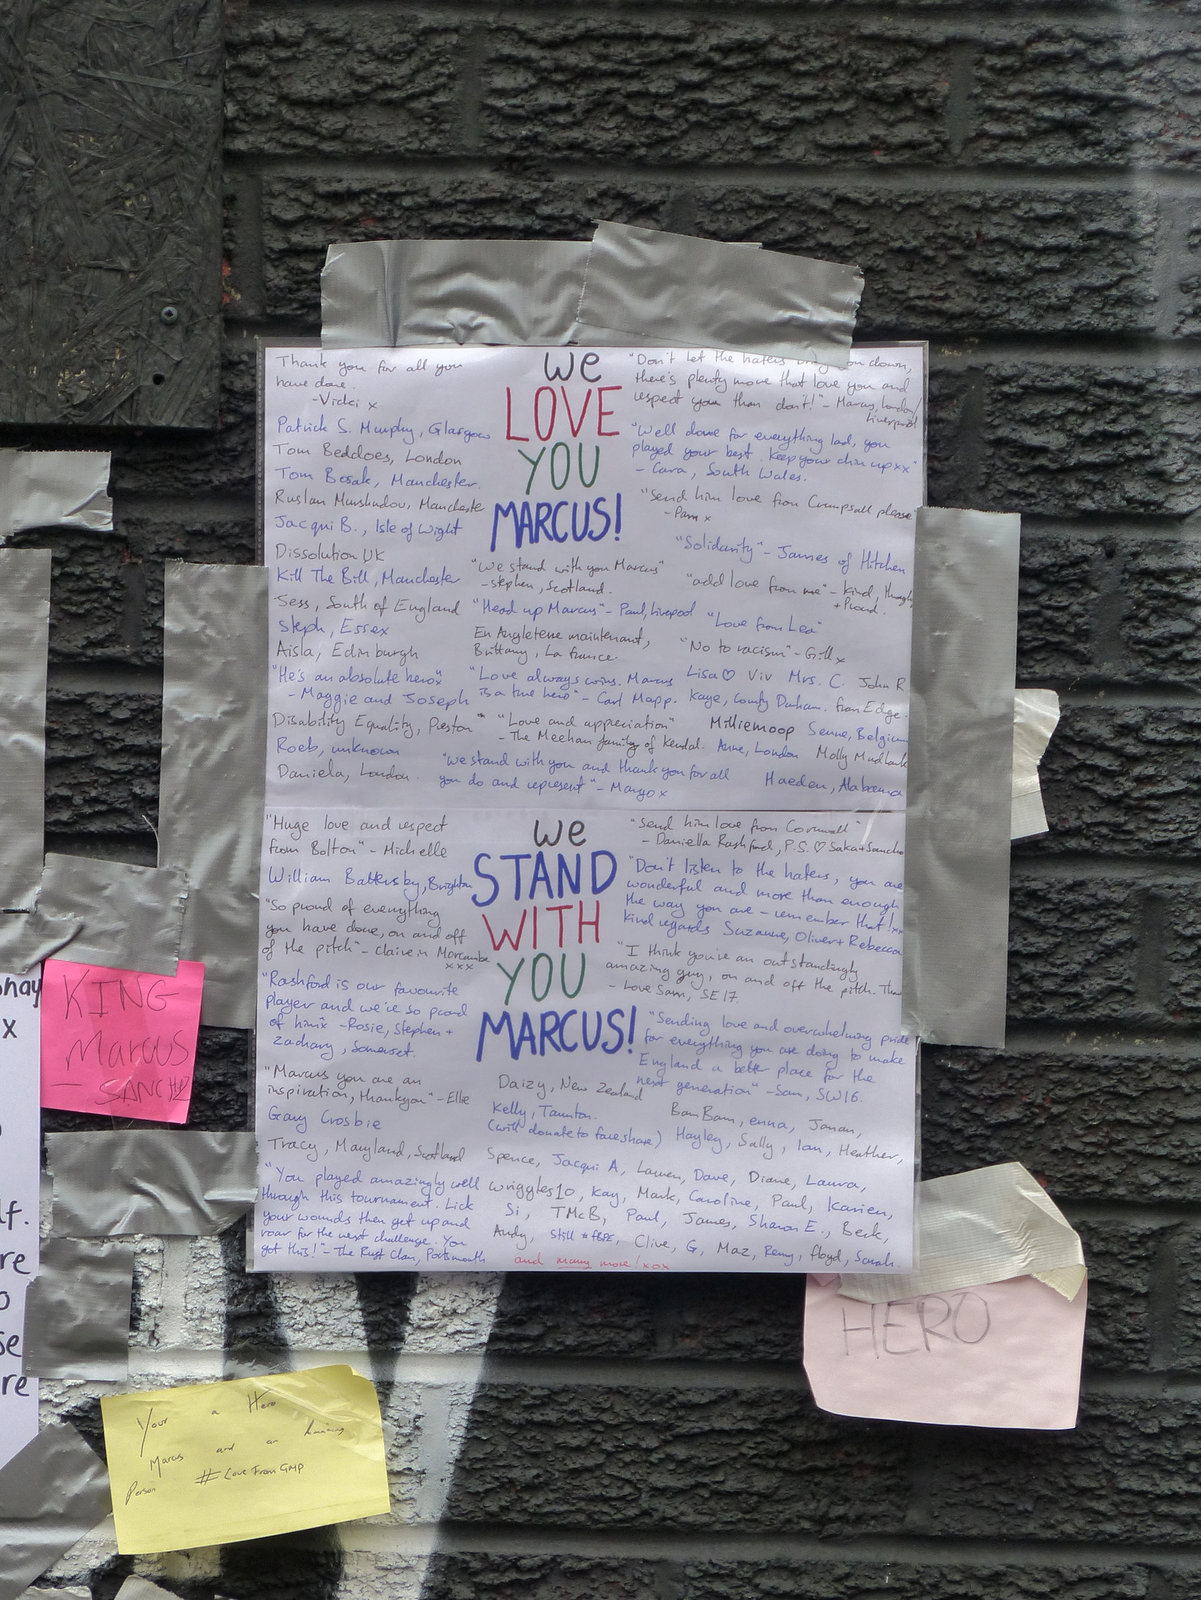 Thank you for all you
have done.
-Vicki x
Patrick S. Murphy, Glasgow
Tom Beddoes, London
Tom Bosak, Manchester.
Ruslan Murshudov, Manchester
Jacqui B., Isle of Wight
Dissolution UK
Kill The Bill, Manchester
Sess, South of England
Steph, Essex
Aisla, Edinburgh
"He's an absolute hero"x
- Maggie and Joseph
Disability Equality, Preston
Roeb, unknown
Daniela, London.
We
LOVE
YOU
MARCUS!
"We stand with you Marcus"
-Stephen, Scotland.
"Head up Marcus" - Paul, Liverpool
En Angleterre maintenant,
Brittany, La france.
"Love always wins. Marcus
is a true hero" - Carl Mapp.
"Love and appreciation"
- The Meehan family of Kendal.
"We stand with you and thank you for all
you do and represent" - Margo x
"Don't let the haters you down,
there's plenty more that love you and
respect you than don't!" - Marcus, London/
Liverpool
"Well done for everything lad, you
played your best. Keep your chin up xx"
- Cara, South Wales.
"Send him love from Crumpsall please"
- Pam x
"Solidarity" - James of Hitchen
"add love from me" - Kind,
+ Proud.
"Love from Lea"
"No to racism" - Gill x
Lisa ♡ Viv Mrs. C. John R
Kaye, County Durham. from Edge.
Milliemoop Senne, Belgium
Anne, London Molly Mudlark
Haeden, Alabama
"Huge love and respect
from Bolton" - Michelle
William Battersby, Brighton
"So proud of everything
you have done, on and off
of the pitch" - Claire in Morecambe
xxx
"Rashford is our favourite
player and we're so proud
of him"x - Rosie, Stephen +
Zachary, Somerset.
"Marcus you are an
inspiration, thankyou" - Ellie
Gary Crosbie
Tracy, Maryland, Scotland
"You played amazingly well
through this tournament. Lick
your wounds then get up and
roar for the next challenge. You
got this!" - The Rust Clan, Portsmouth
We
STAND
WITH
YOU
MARCUS!
"Send him love from Cornwall"
- Daniella Rashford, P.S. ♡ Saka + Sancho
"Don't listen to the haters, you are
wonderful and more than enough
the way you are - remember that! xx
Kind regards Suzanne, Oliver + Rebecca
"I think you're an outstandingly
amazing guy, on and off the pitch.
- Love Sam, SE17.
"Sending love and overwhelming pride
for everything you are doing to make
England a better place for the
next generation" - Sam, SW16.
Daizy, New Zealand
Kelly, Taunton.
(will donate to fareshare)
BamBam, enna, Janan,
Hayley, Sally, Ian, Heather,
Spence, Jacqui A, Lauren, Dave, Diane, Laura,
wriggles10, Kay, Mark, Caroline, Paul, Karien,
Si, TMcB, Paul, James, Sharon E., Beck,
Andy, Still #FBPE, Clive, G, Maz, Remy, floyd, Sarah.
and many more! xox
KING
Marcus
HERO
Your a Hero
Marcus and an Amazing
Person #LoveFromGMP
x
lf.
re
o
se
re